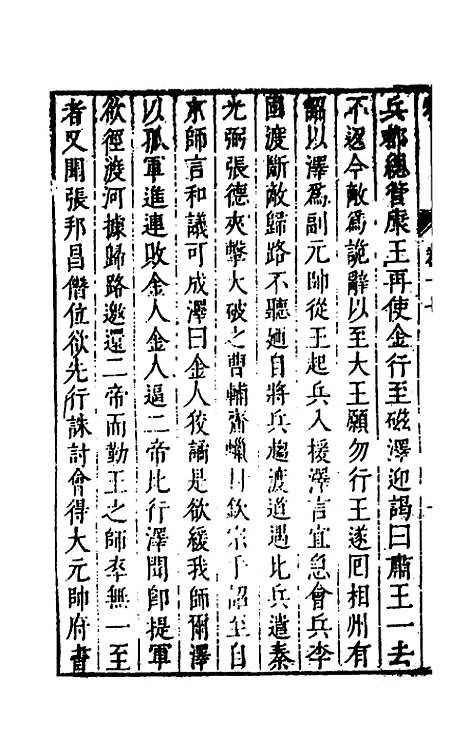 兵都總管康王再使金行至磁澤迎謁曰肅王一去
不返今敵爲詭辭以至大王願勿行王遂囘相州有
詔以澤爲副元帥從王起兵入援澤言宜急會兵李
固渡斷敵歸路不聽廼自將兵趨渡道遇北兵遣秦
光弼張德夾擊大破之曹輔齎蠟封欽宗手詔至自
京師言和議可成澤曰金人狡譎是欲緩我師爾澤
以孤軍進連敗金人金人逼二帝北行澤聞卽提軍
欲徑渡河據歸路邀還二帝而勤王之師卒無一至
者又聞張邦昌僭位欲先行誅討會得大元帥府書